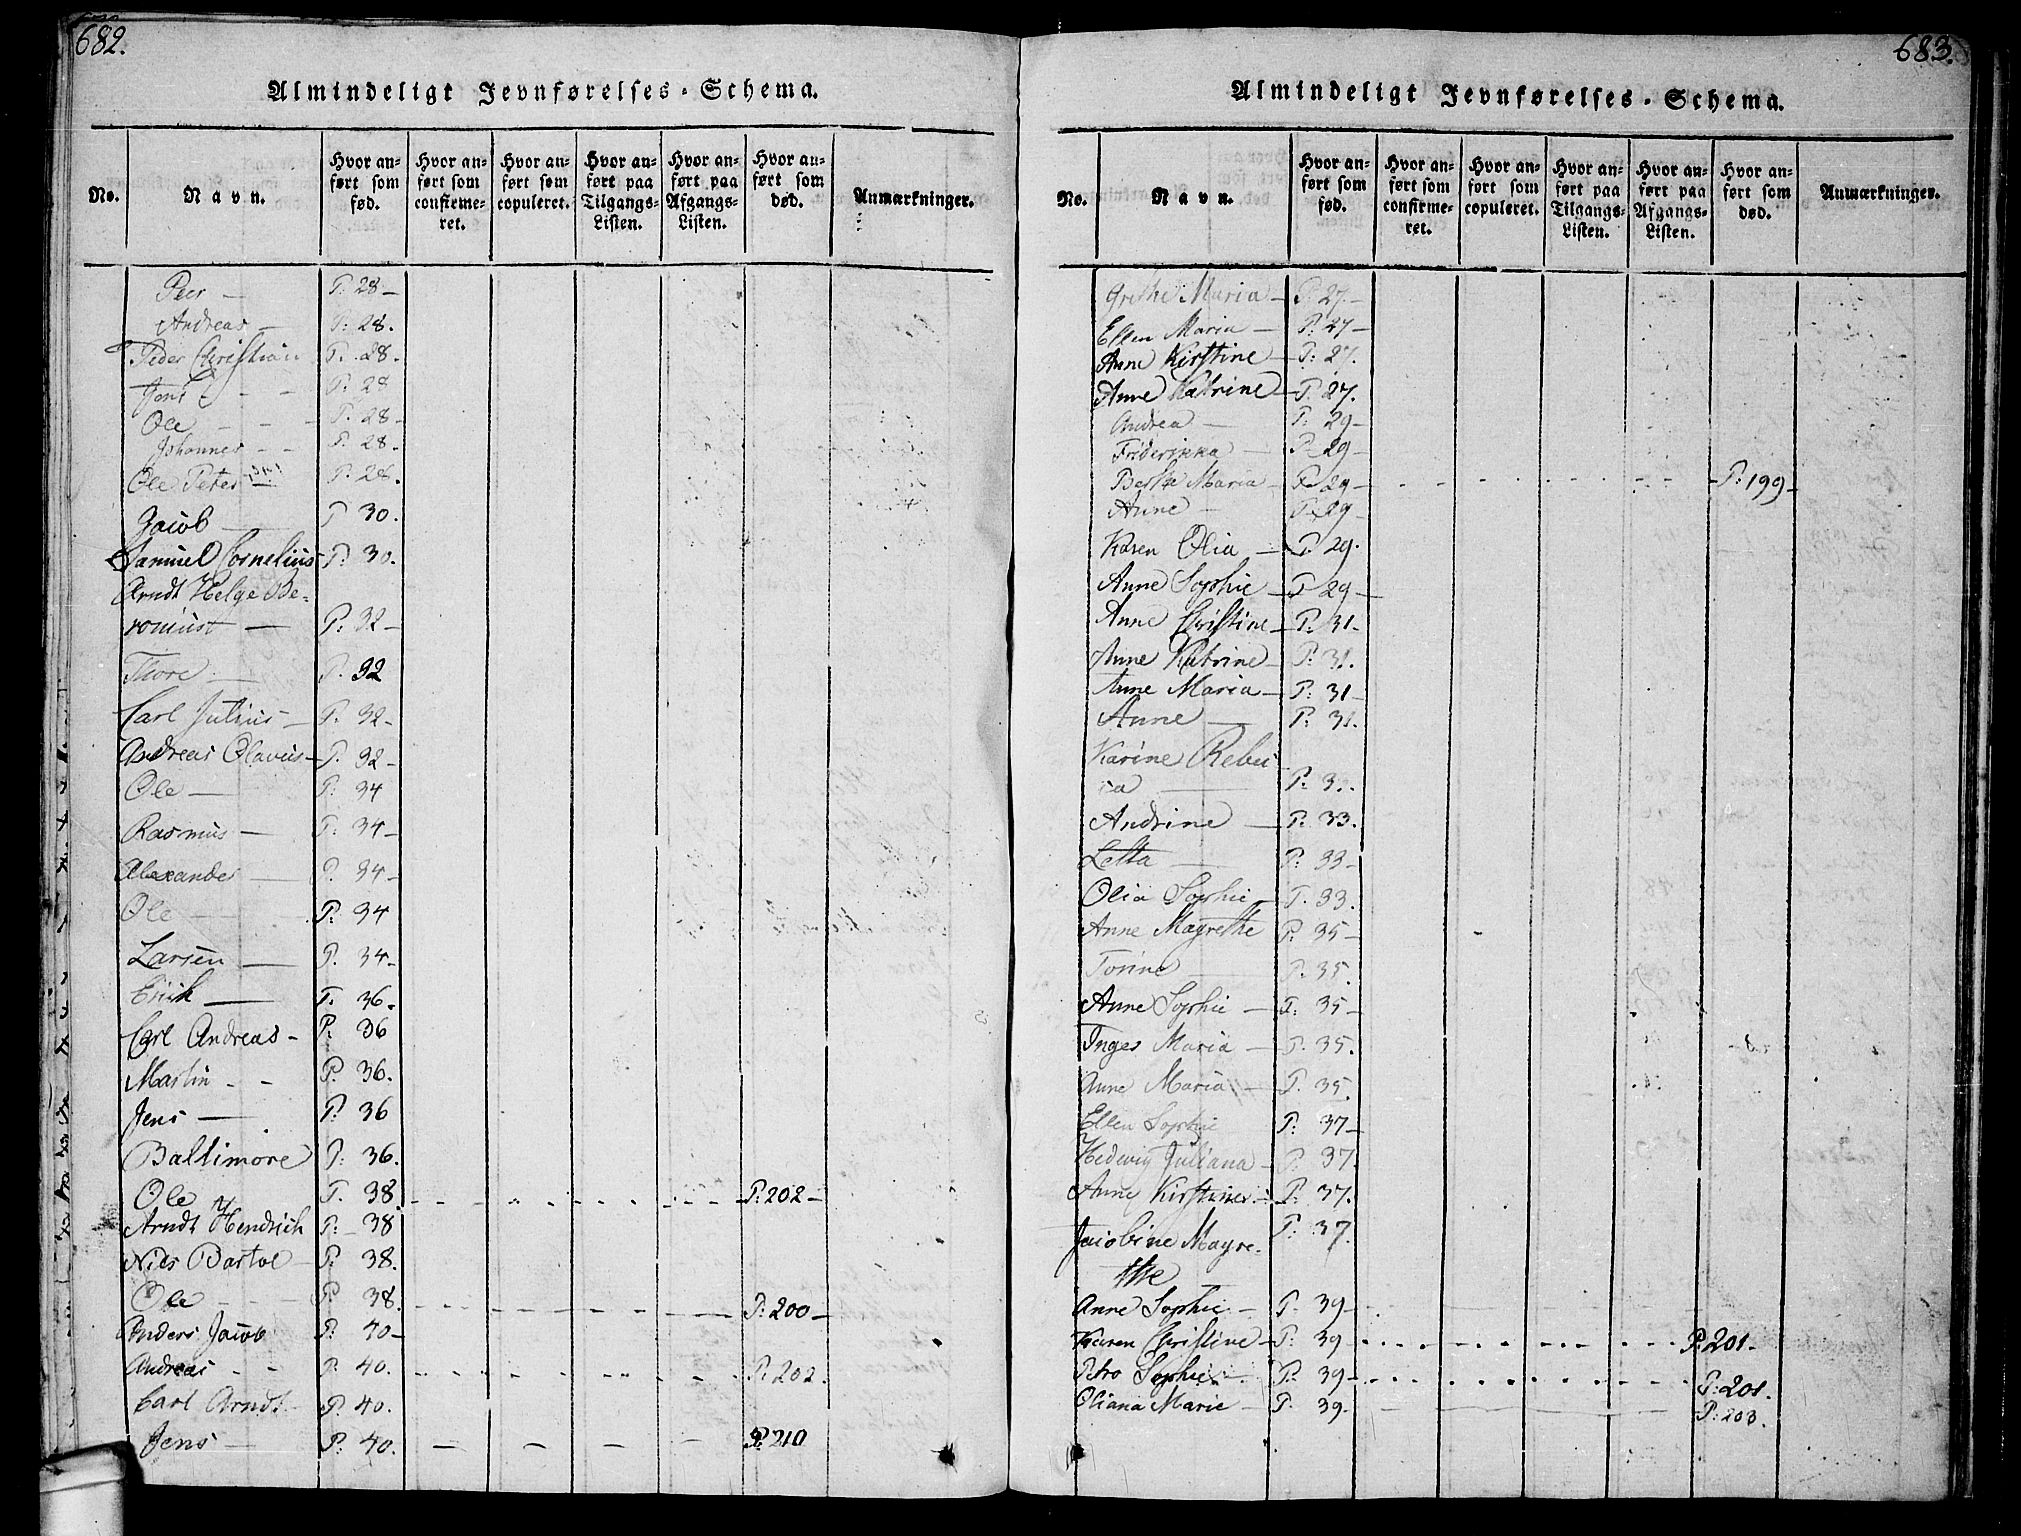 682.
Almindeligt Jevnførelses-Schema.
No.
Navn.
Hvor an-
ført som
fød.
Hvor an-
ført som
confirme-
ret.
Hvor an-
ført som
copuleret.
Hvor an-
ført paa
Tilgangs-
Listen.
Hvor an-
ført paa
Afgangs-
Listen.
Hvor an-
ført som
død.
Anmærkninger.
Peer — P: 28 —
Andreas — P: 28.
Peder Christian P: 28.
Jens — — P: 28
Ole — — — P: 28 —
Johannes — — P: 28.
Ole Peter P: 28.
Jacob — P 30.
Samuel Cornelius P: 30.
Arndt Helge
P: 32 —
Thore — P. 32
Carl Julius — P: 32 —
Andreas Olavus — P: 32 —
Ole — P: 34
Rasmus — P: 34 —
Alexander — P. 34 —
Ole — P: 34
Larsen — P. 34 —
Erich — P. 36 —
Carl Andreas — P: 36
Martin - - P. 36.
Jens — P: 36
Baltimore P: 36.
Ole P. 38. - - - - - - P: 202 —
Arndt Hendrich P: 38.
Niels Bartol P: 38.
Ole — — P. 38. - - - - - - P: 200 —
Anders Jacob P: 40 —
Andreas - - P: 40. - - - - - - P: 202.
Carl Arndt P: 40.
Jens — P: 40. — — — — P: 210
683.
Almindeligt Jevnførelses-Schema.
No.
Navn.
Hvor an-
ført som
fød.
Hvor an-
ført som
confirme-
ret.
Hvor an-
ført som
copuleret.
Hvor an-
ført paa
Tilgangs-
Listen.
Hvor an-
ført paa
Afgangs-
Listen.
Hvor an-
ført som
død.
Anmærkninger.
Grethe Maria — P. 27 —
Ellen Maria — P: 27 —
Anne Kirstine — P: 27.
Anne Katrine — P. 27.
Andrea — P: 29 —
Friderikka — P. 29 —
Berthe Maria — P. 29 — - - - - - - P: 199 —
Anne — P. 29 —
Karen Olia — P 29.
Anne Sophie — P 29 —
Anne Christine — P: 31 —
Anne Katrine — P: 31.
Anne Maria — P: 31 —
Anne — P: 31.
Karine
P: 33.
Andrine — P: 33.
P: 33 —
Olia Sophie — P. 33.
Anne Magrethe P: 35 —
Torine P: 35.
Anne Sophie — P: 35 —
Inger Maria — P: 35.
Anne Maria — P. 35.
Ellen Sophie P: 37 —
Hedevig Juliana — P: 37.
Anne Kirstine — P: 37.
Jacobine Magre-
the P: 37.
Anne Sophie — P. 39 —
Karen Christine — P: 39 - - - - - - P: 201 —
Petro Sophie — P: 39 — - - - - - - P: 201.
Oliana Marie — P. 39. — — — P: 203.